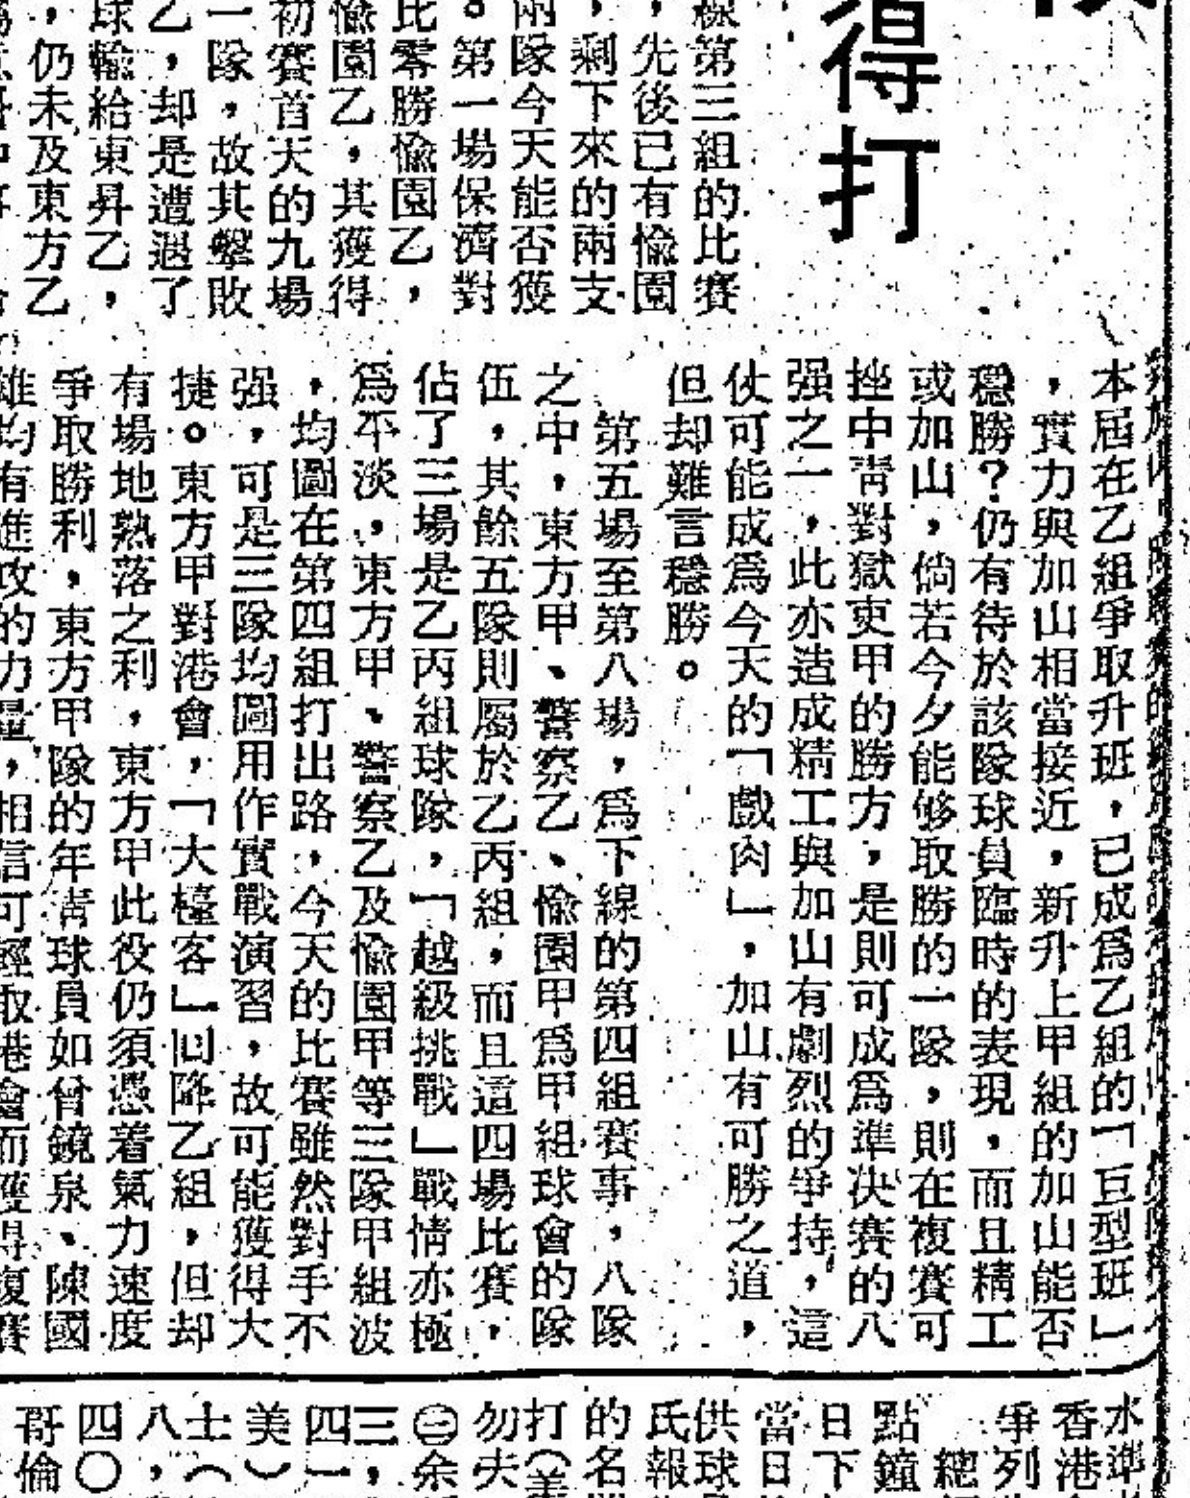 得打
線第三組的比賽
，先後已有愉園
，剩下來的兩支
兩隊今天能否獲
。第一場保濟對
比零勝愉園乙，
愉園乙，其獲得
初賽首天的九場
一隊，故其擊敗
乙，却是遭遇了
球輸給東昇乙，
，仍未及東方乙
本屆在乙組爭取升班，已成爲乙組的「巨型班」
，實力與加山相當接近，新升上甲組的加山能否
穩勝？仍有待於該隊球員臨時的表現，而且精工
或加山，倘若今夕能够取勝的一隊，則在複賽可
挫中靑對獄吏甲的勝方，是則可成爲準决賽的八
强之一，此亦造成精工與加山有劇烈的爭持，這
仗可能成爲今天的「戲肉」，加山有可勝之道，
但却難言穩勝。
第五場至第八場，爲下線的第四組賽事，八隊
之中，東方甲、警察乙、愉園甲爲甲組球會的隊
伍，其餘五隊則屬於乙丙組，而且這四場比賽，
佔了三場是乙丙組球隊，「越級挑戰」戰情亦極
爲平淡，東方甲、警察乙及愉園甲等三隊甲組波
，均圖在第四組打出路，今天的比賽雖然對手不
强，可是三隊均圖用作實戰演習，故可能獲得大
捷。東方甲對港會，「大檯客」回降乙組，但却
有場地熟落之利，東方甲此役仍須憑着氣力速度
爭取勝利，東方甲隊的年靑球員如曾鏡泉、陳國
雄均有進攻的力量，相信可輕取港會而獲得復賽
水準
香港
爭列
總
點鐘
日下
當日
供球
氏報
的名
打（美
勿夫
㊂余
三，
四一
美）
士（
八，
四〇
哥倫